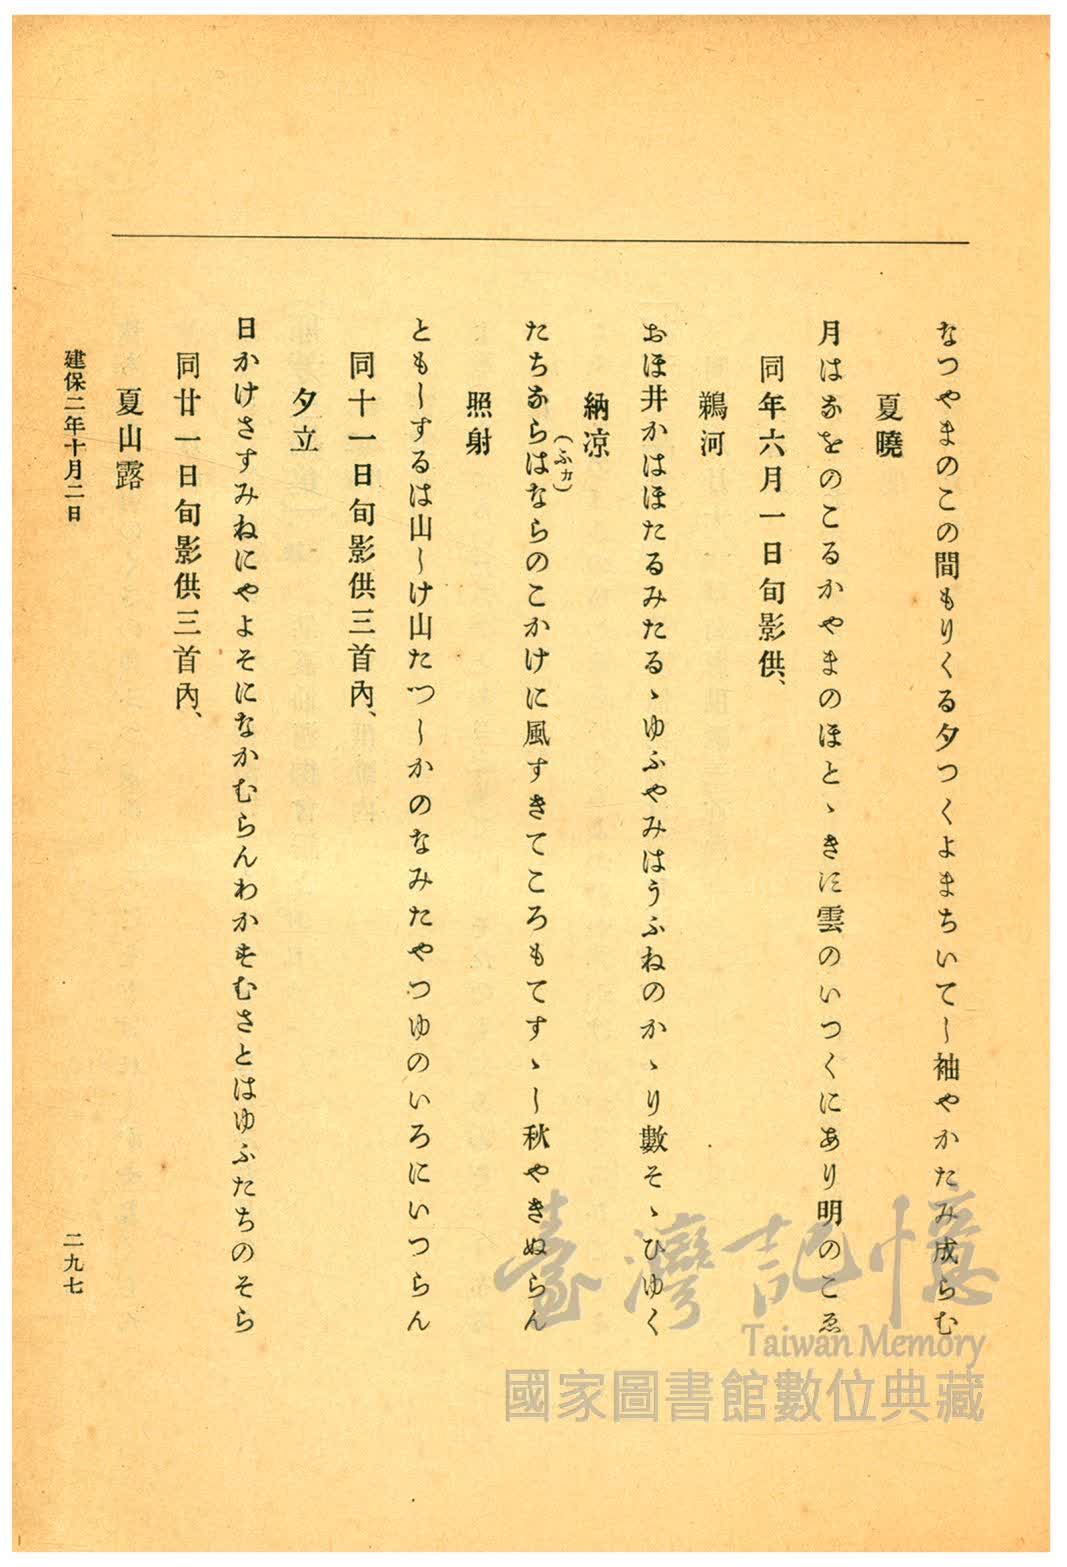 なつやまのこの間もりくる夕つくよまちいてし袖やかたみ成らむ
夏曉
月はなをのこるかやまのほとゝきに雲のいつくにあり明のこゑ
同年六月一日旬影供、
鵜河
おほ井かはほたるみたるゝゆふやみはうふねのかゝり數そゝひゆく
納凉
(ふカ)
たちならはならのこかけに風すきてころもてすゝし秋やきぬらん
照射
ともしするは山しけ山たつしかのなみたやつゆのいろにいつらん
同十一日旬影供三首內、
夕立
日かけさすみねにやよそになかむらんわかすむさとはゆふたちのそら
同廿一日旬影供三首內、
夏山露
建保二年十月二日
二九七
臺灣記憶
Taiwan Memory
國家圖書館數位典藏